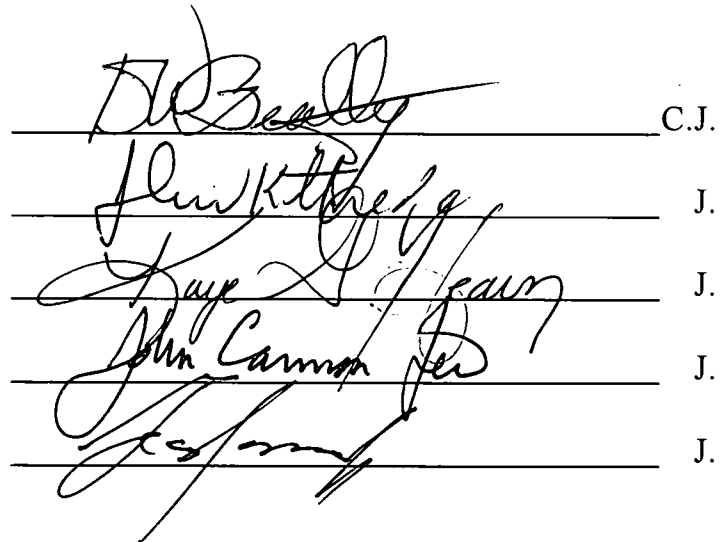 DW Beatty C.J.
John K Kittredge J.
Kaye G Hearn J.
John Cannon Few J.
J.